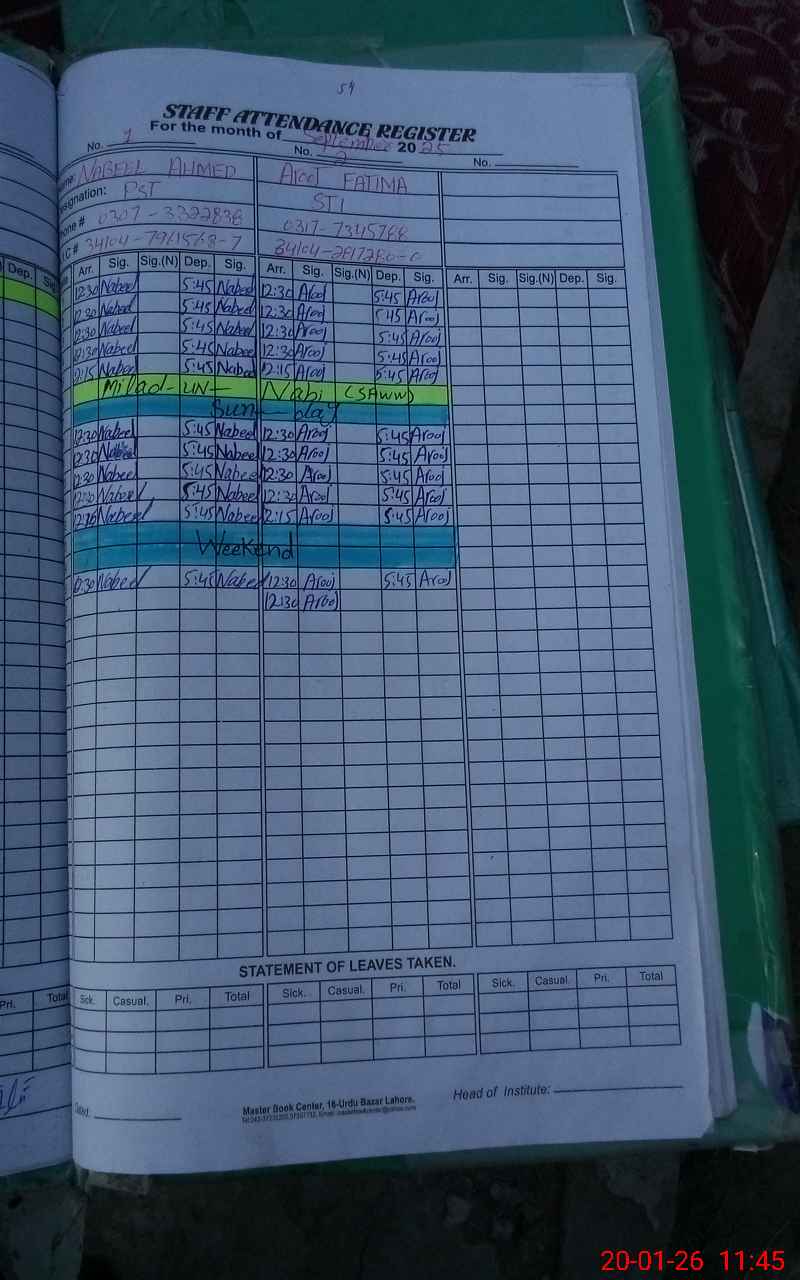 54
STAFF ATTENDANCE REGISTER
For the month of September 2025
No. 1 No. 2 No.
NABEEL AHMED AROOJ FATIMA
Designation: PST STI
0307-3322838 0317-7345788
34104-7961568-7
Dep. Arr. Sig. Sig.(N) Dep. Sig. Arr. Sig. Sig.(N) Dep. Sig. Arr. Sig. Sig.(N) Dep. Sig.
12:30 Nabeel 5:45 Nabeel 12:30 Arooj 5:45 Arooj
12:30 Nabeel 5:45 Nabeel 12:30 Arooj 5:45 Arooj
12:30 Nabeel 5:45 Nabeel 12:30 Arooj 5:45 Arooj
12:30 Nabeel 5:45 Nabeel 12:30 Arooj 5:45 Arooj
12:15 Nabeel 5:45 Nabeel 12:15 Arooj 5:45 Arooj
Milad-UN- Nabi (SAWW)
Sun-day
12:30 Nabeel 5:45 Nabeel 12:30 Arooj 5:45 Arooj
12:30 Nabeel 5:45 Nabeel 12:30 Arooj 5:45 Arooj
12:30 Nabeel 5:45 Nabeel 12:30 Arooj 5:45 Arooj
12:30 Nabeel 5:45 Nabeel 12:30 Arooj 5:45 Arooj
Nabeel 5:45 Nabeel 12:15 Arooj 5:45 Arooj
Weekend
12:30 Nabeel 5:45 Nabeel 12:30 Arooj 5:45 Arooj
12:30 Arooj
STATEMENT OF LEAVES TAKEN.
Pri. Total Sick. Casual. Pri. Total Sick. Casual. Pri. Total Sick. Casual. Pri. Total
Dated: Head of Institute:
Master Book Center, 16-Urdu Bazar Lahore.
20-01-26 11:45